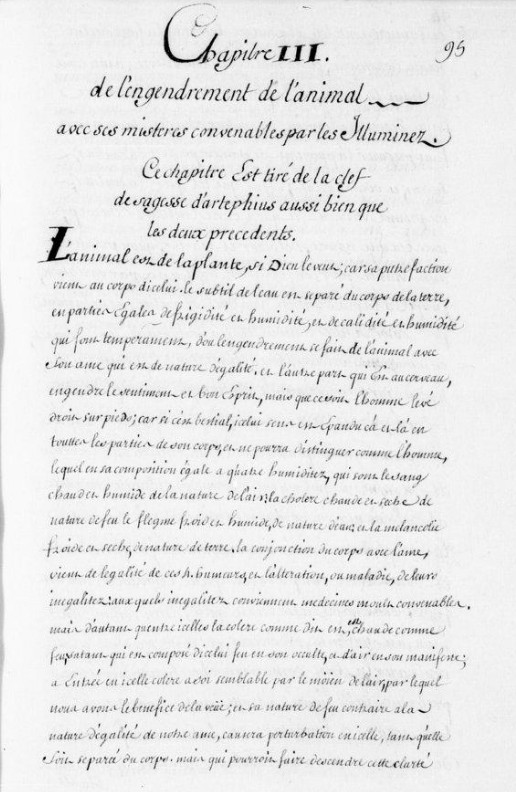 Chapitre III.
95
de l'engendrement de l'animal
avec ses misteres convenables par les Illuminez.
Ce chapitre Est tiré de la clef
de sagesse d'artephius aussi bien que
les deux precedents.
L'animal est de la plante, si Dieu le veut; car sa putrefaction
vient au corps dicelui. le subtil de l'eau est separé du corps de la terre,
en parties Egales de frigidité et humidité, et de calidité et humidité
qui font temperament, d'ou lengendrement se fait de l'animal avec
Son ame qui est de nature dégalité. et l'autre part qui Est au cerveau,
engendre le sentiment et bon Esprit, mais que ce soit l'homme levé
droit sur pieds; car si cest bestial, icelui sens est Epandu çà et là en
touttes les parties de son corps, et ne pourra distinguer comme l'homme,
lequel en sa composition égale a quatre humiditez, qui sont le sang
chaud et humide de la nature de l'air; la cholere chaude et seche de
nature de feu le flegme froid et humide, de nature d'eau; et la melancolie
froide et seche, de nature de terre. la conjonction du corps avec l'ame,
vient de legalité de ces 4. humeurs, et l'alteration, ou maladie, de leurs
inegalitez: aux quels inegalitez conviennent medecines moult convenables.
mais d'autant quentre icelles la colere comme dit est, est chaude comme
feu, satant qui est composé dicelui feu en son occulte, et d'air en son manifeste;
a Entrée en icelle colere a soi semblable par le moien de lair, par lequel
nous avons le benefice de la veüe; et sa nature de feu contraire a la
nature dégalité de notre ame, causera perturbation en icelle, tant qu'elle
Soit separé du corps. mais qui pourroit faire descendre cette clarté